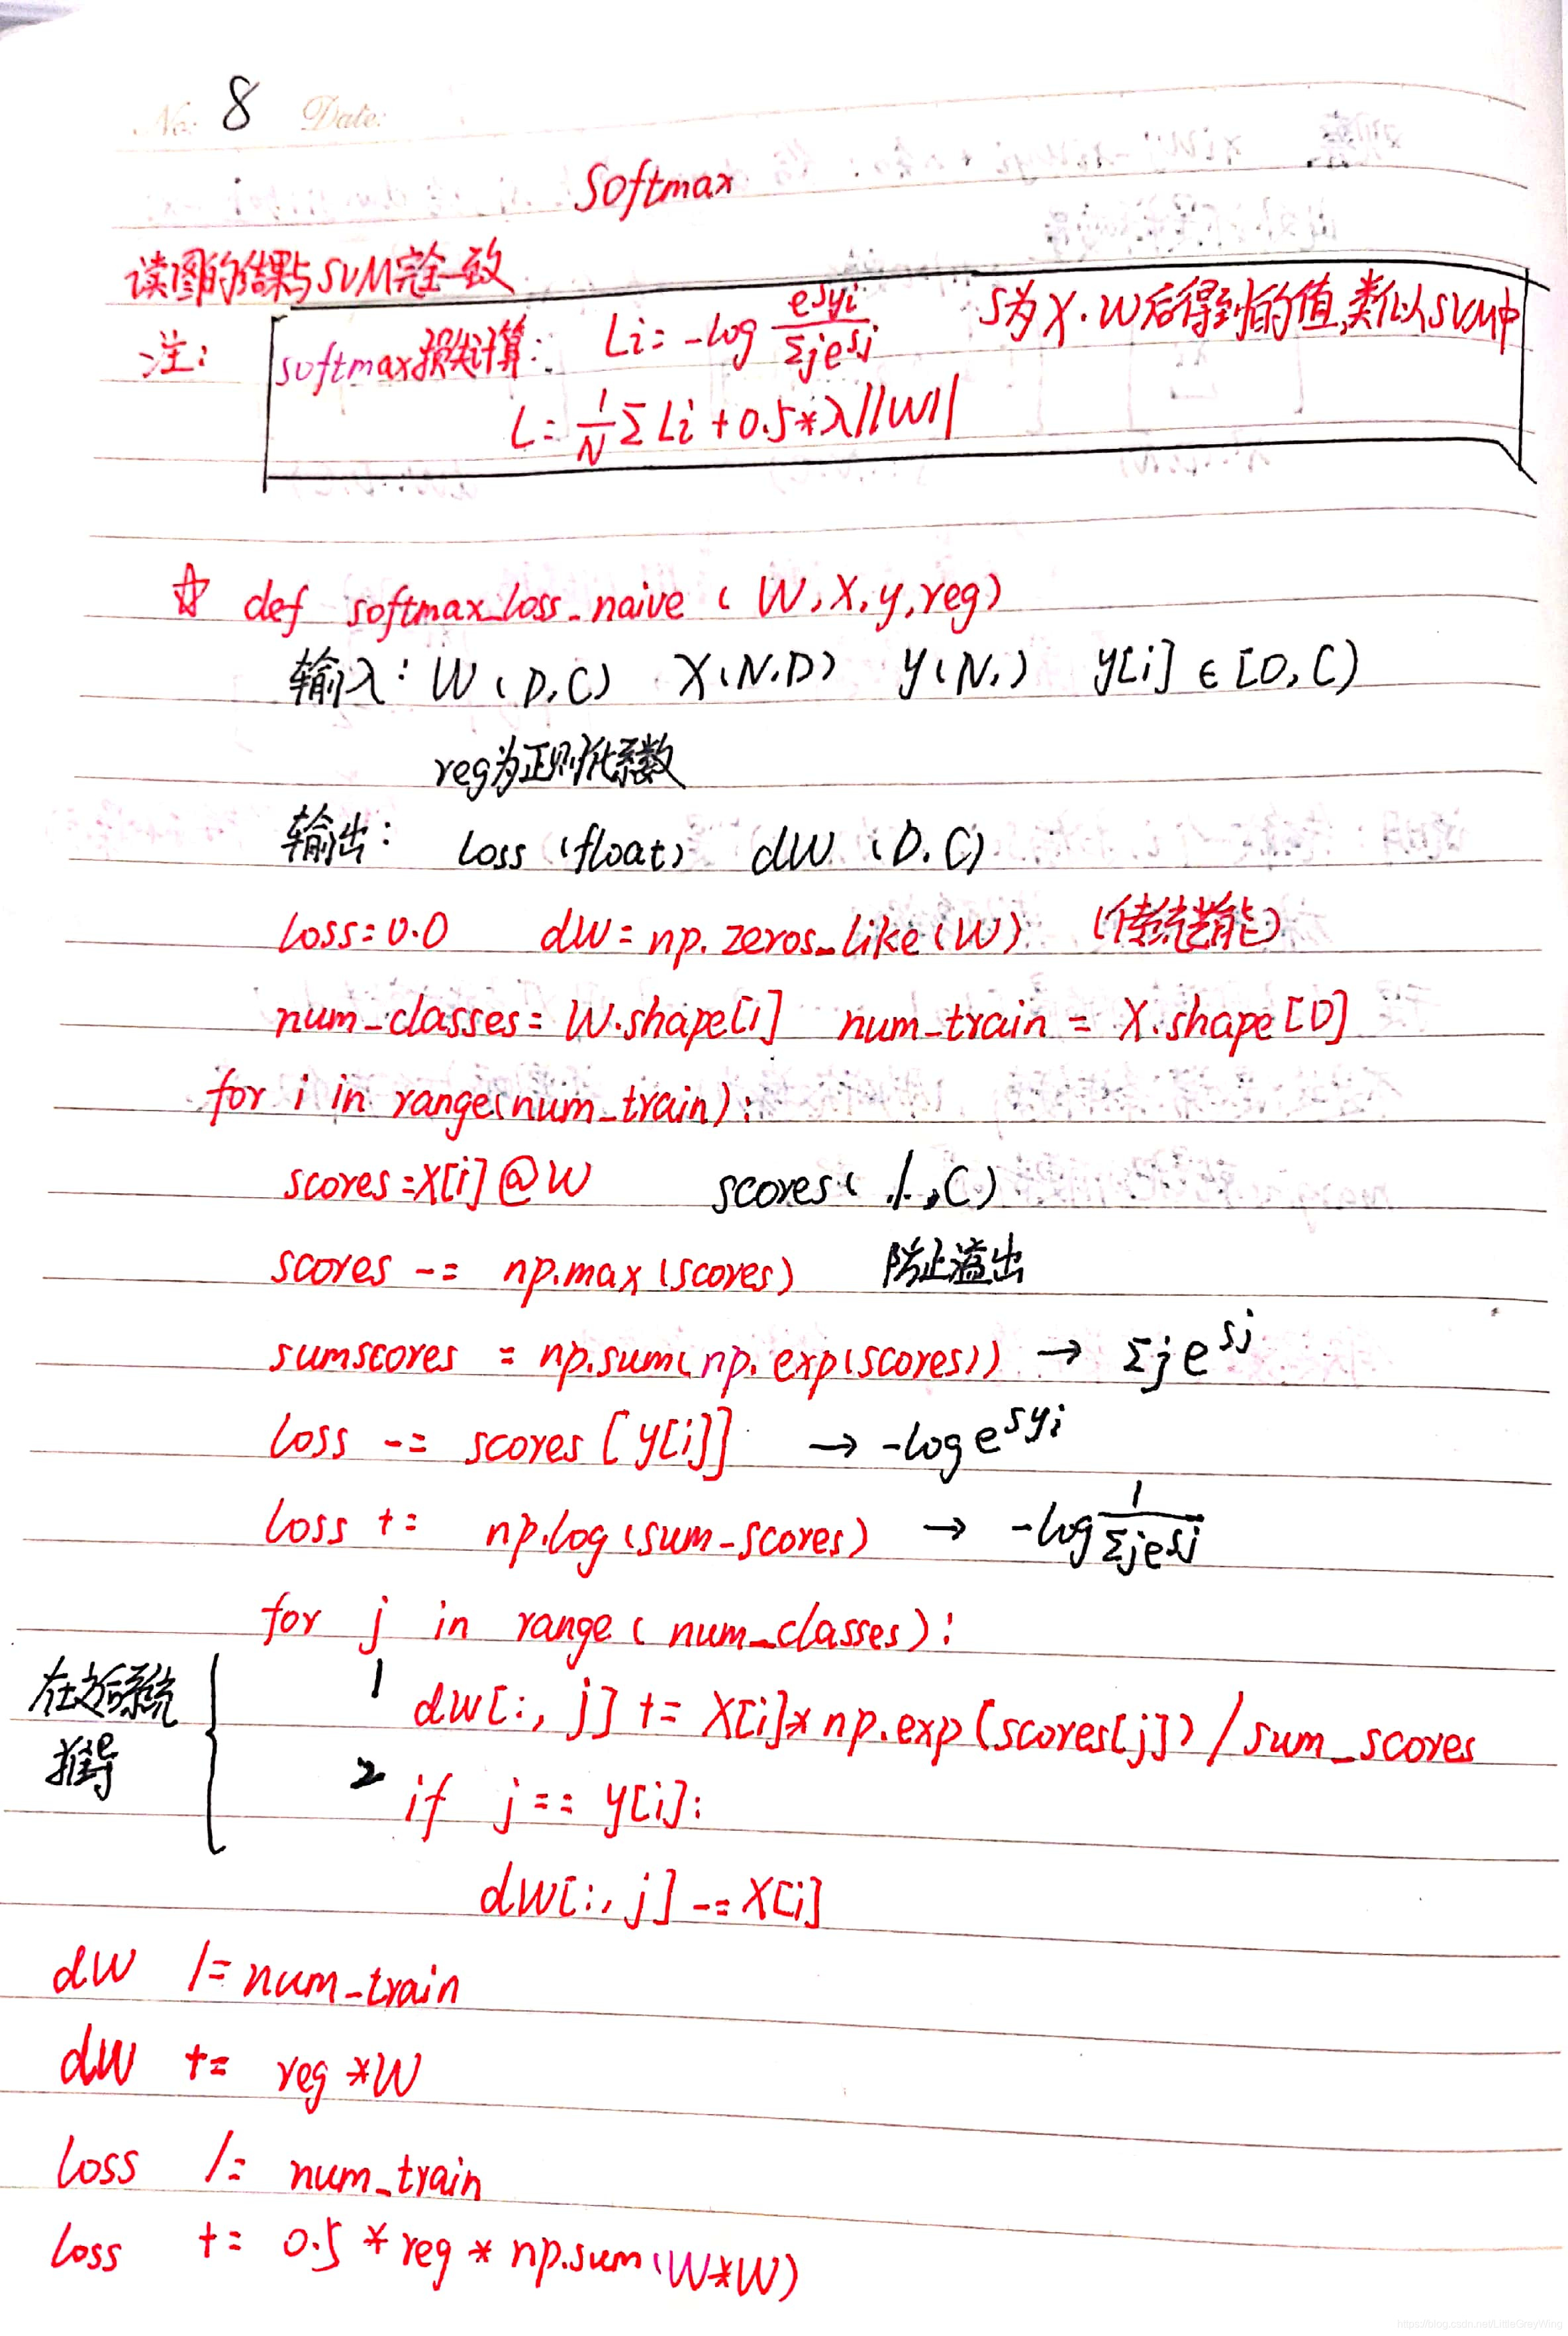 No: 8 Date:
Softmax
读图的结果与SVM完全一致
注: softmax损失计算: Li = -log e^{syi} / Σj e^{sj} S为X·W后得到的值,类似SVM中
L = 1/N Σ Li + 0.5*λ||W||
☆ def softmax_loss_naive (W, X, y, reg)
输入: W (D,C) X(N,D) y(N,) y[i] ∈ [0,C)
reg为正则化系数
输出: loss (float) dW (D,C)
loss=0.0 dW = np.zeros_like(W) (传统艺能)
num_classes = W.shape[1] num_train = X.shape[0]
for i in range(num_train):
scores=X[i]@W scores( 1,C)
scores -= np.max(scores) 防止溢出
sumscores = np.sum(np.exp(scores)) → Σj e^{sj}
loss -= scores[y[i]] → -log e^{syi}
loss += np.log(sum-scores) → -log 1/Σj e^{sj}
for j in range(num_classes):
在之后系统推导
1 dW[:, j] += X[i]*np.exp(scores[j])/sum_scores
2 if j == y[i]:
dW[:, j] -= X[i]
dW /= num_train
dW += reg*W
loss /= num_train
loss += 0.5*reg*np.sum(W*W)
https://blog.csdn.net/LittleGreyWing